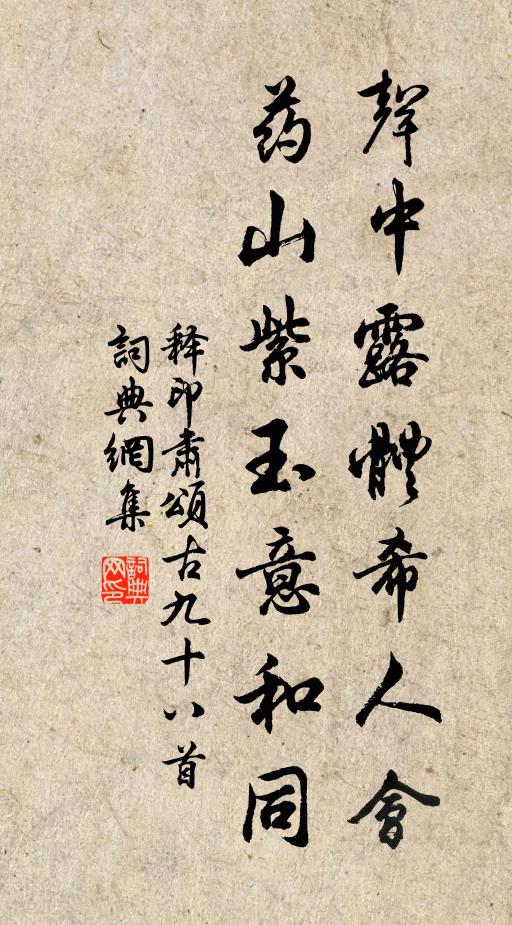 聲中露體希人會
药山紫玉意和同
释印肃頌古九十八首
詞典網集
詞典網印